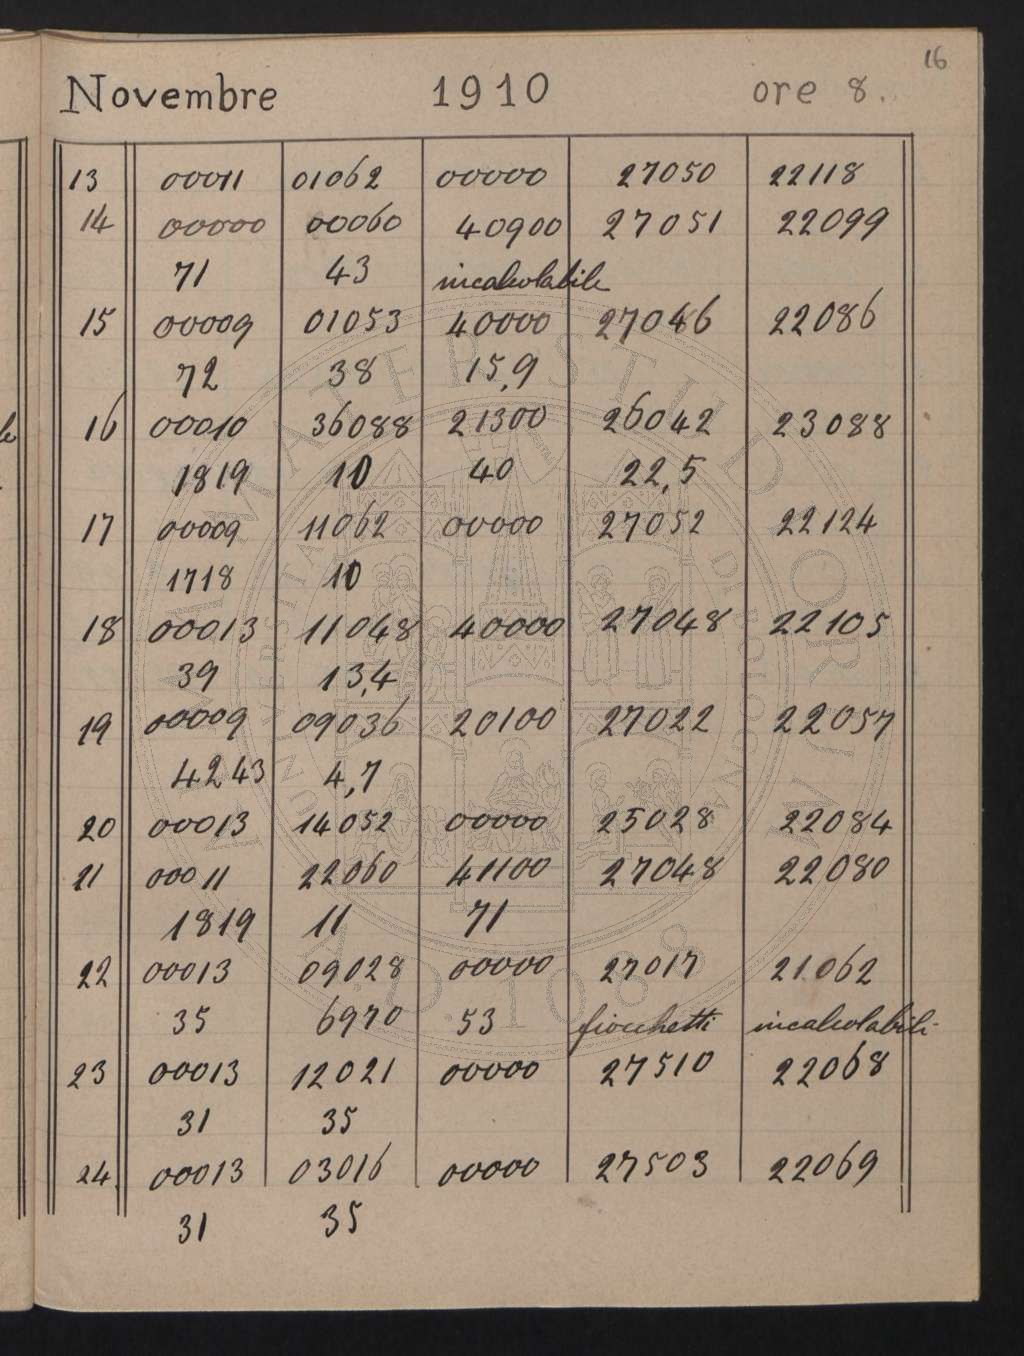 16
Novembre 1910 ore 8.
13 00011 01062 00000 27050 22118
14 00000 00060 40900 27051 22099
71 43 incalcolabile
15 00009 01053 40000 27046 22086
72 38 15,9
16 00010 36088 21300 26042 23088
1819 10 40 22,5
17 00009 11062 00000 27052 22124
1718 10
18 00013 11048 40000 27048 22105
39 13,4
19 00009 09036 20100 27022 22057
4243 4,7
20 00013 14052 00000 25028 22084
21 00011 22060 41100 27048 22080
1819 11 71
22 00013 09028 00000 27017 21062
35 6970 53 fiocchetti incalcolabili
23 00013 12021 00000 27510 22068
31 35
24 00013 03016 00000 27503 22069
31 35
ALMA MATER STUDIORUM
A.D. 1088